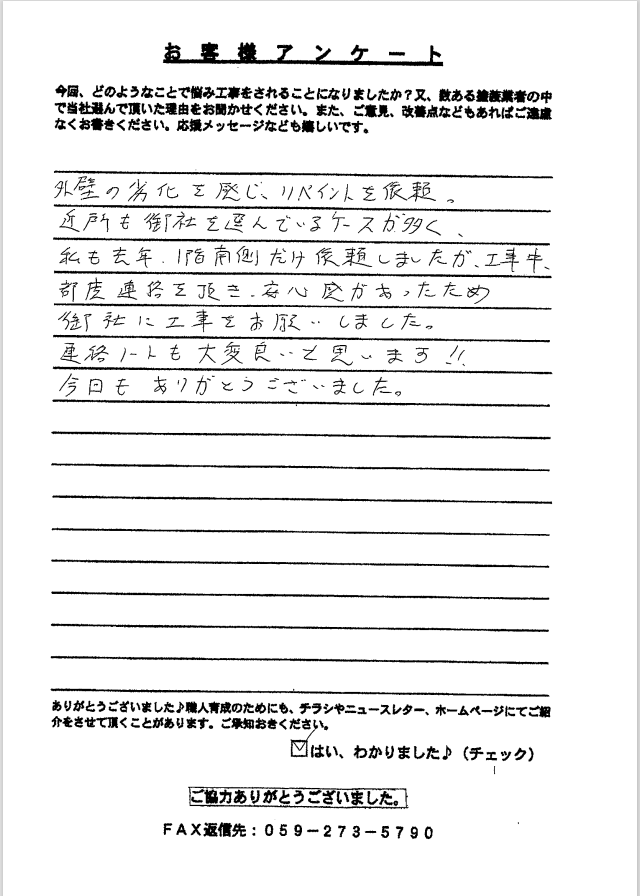 お客様アンケート
今回、どのようなことで悩み工事をされることになりましたか？又、数ある塗装業者の中
で当社選んで頂いた理由をお聞かせください。また、ご意見、改善点などもあればご遠慮
なくお書きください。応援メッセージなども嬉しいです。
外壁の劣化を感じ、リペイントを依頼。
近所も御社を選んでいるケースが多く、
私も去年、1階南側だけ依頼しましたが、工事中、
都度連絡を頂き、安心感があったため
御社に工事をお願いしました。
連絡ノートも大変良いと思います!!
今回もありがとうございました。
ありがとうございました♪職人育成のためにも、チラシやニュースレター、ホームページにてご紹
介をさせて頂くことがあります。ご承知おきください。
はい、わかりました♪（チェック）
ご協力ありがとうございました。
ＦＡＸ返信先：０５９－２７３－５７９０